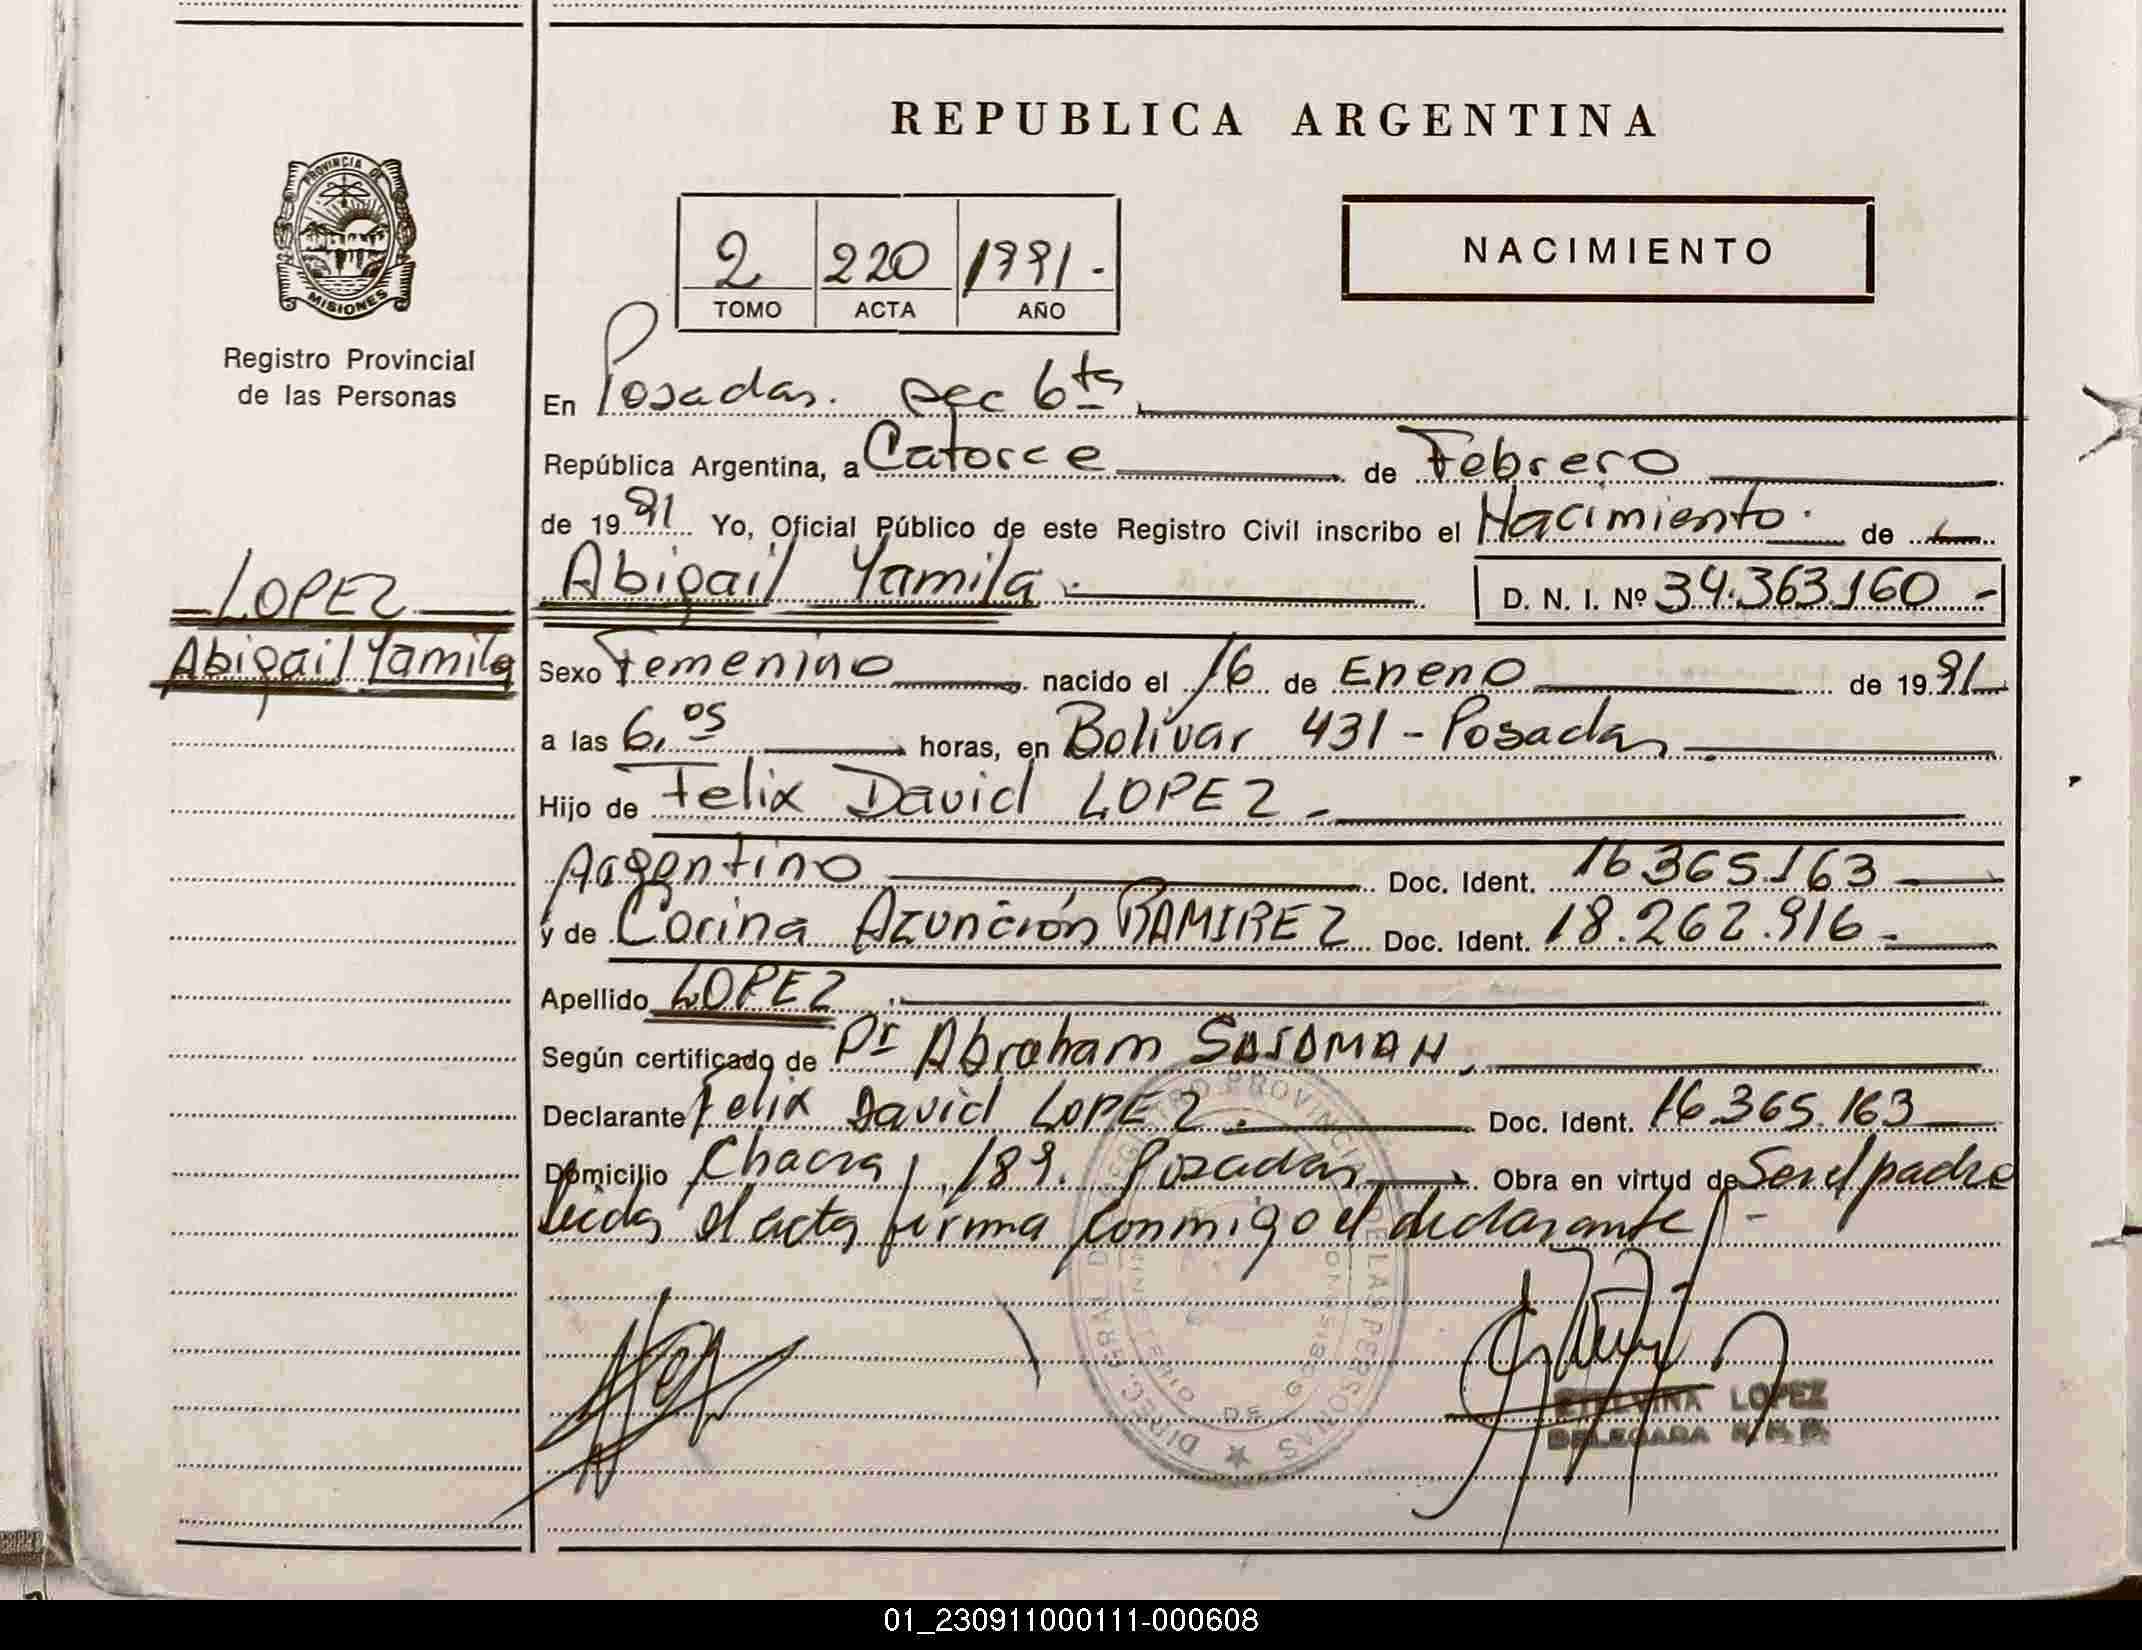 REPUBLICA ARGENTINA
PROVINCIA DE
MISIONES
Registro Provincial
de las Personas
2 220 1991.-
TOMO ACTA AÑO
NACIMIENTO
En Posadas. sec 6ta
República Argentina, a Catorce de Febrero
de 1991 Yo, Oficial Público de este Registro Civil inscribo el Nacimiento. de
Abigail Yamila.
D. N. I. Nº 34.363.160 -
LOPEZ
Abigail Yamila
Sexo Femenino nacido el 16 de Enero de 1991
a las 6,05 horas, en Bolivar 431 - Posadas
Hijo de Felix David LOPEZ.
Argentino Doc. Ident. 16 365.163
y de Corina Azunción RAMIREZ Doc. Ident. 18.262.916.-
Apellido LOPEZ.
Según certificado de Dr Abraham
Declarante Felix David LOPEZ. Doc. Ident. 16 365.163
Domicilio Chacra 189. Posadas Obra en virtud de Ser el padre
leida el acta firma conmigo el declarante -
DIREC. GRAL DE REGISTRO PROVINCIAL DE LAS PERSONAS
ETELVINA LOPEZ
DELEGADA
01_230911000111-000608